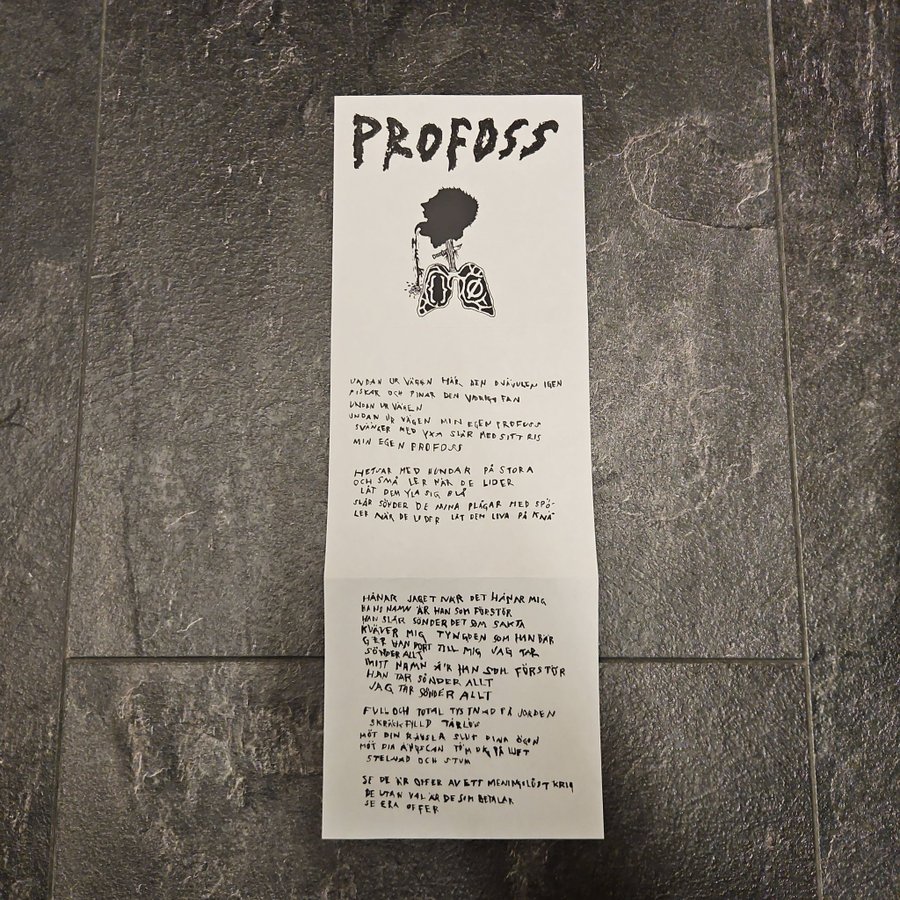 PROFOSS
UNDAN UR VÄGEN HÄR DEN DJÄVULEN IGEN
PISKAR OCH PINAR DEN VARIGA FAN
UNDAN UR VÄGEN
UNDAN UR VÄGEN MIN EGEN PROFOSS
SVÄNGER MED YXA SLÅR MED SITT RIS
MIN EGEN PROFOSS
HETSAR MED HUNDAR PÅ STORA
OCH SMÅ LER NÄR DE LIDER
LÅT DEM YLA SIG BLÅ
SLÅR SÖNDER DE MINA PLÅGAR MED SPÖ
LER NÄR DE LIDER LÅT DEN LEVA PÅ KNÄ
HÅNAR JAGET NÄR DET HÅNAR MIG
HANS NAMN ÄR HAN SOM FÖRSTÖR
HAN SLÅR SÖNDER DET SOM SAKTA
KVÄVER MIG TYNGDEN SOM HAN BÄR
GER HAN BORT TILL MIG JAG TAR
SÖNDER ALLT
MITT NAMN ÄR HAN SOM FÖRSTÖR
HAN TAR SÖNDER ALLT
JAG TAR SÖNDER ALLT
FULL OCH TOTAL TYSTNAD PÅ JORDEN
SKRÄCKFYLLD TÅRLÖS
MÖT DIN RÄDSLA SLUT DINA ÖGON
MÖT DIN ÄNGSLAN TÖM DIG PÅ LUFT
STELNAD OCH STUM
SE DE ÄR OFFER AV ETT MENINGSLÖST KRIG
DE UTAN VAL ÄR DE SOM BETALAR
SE ERA OFFER